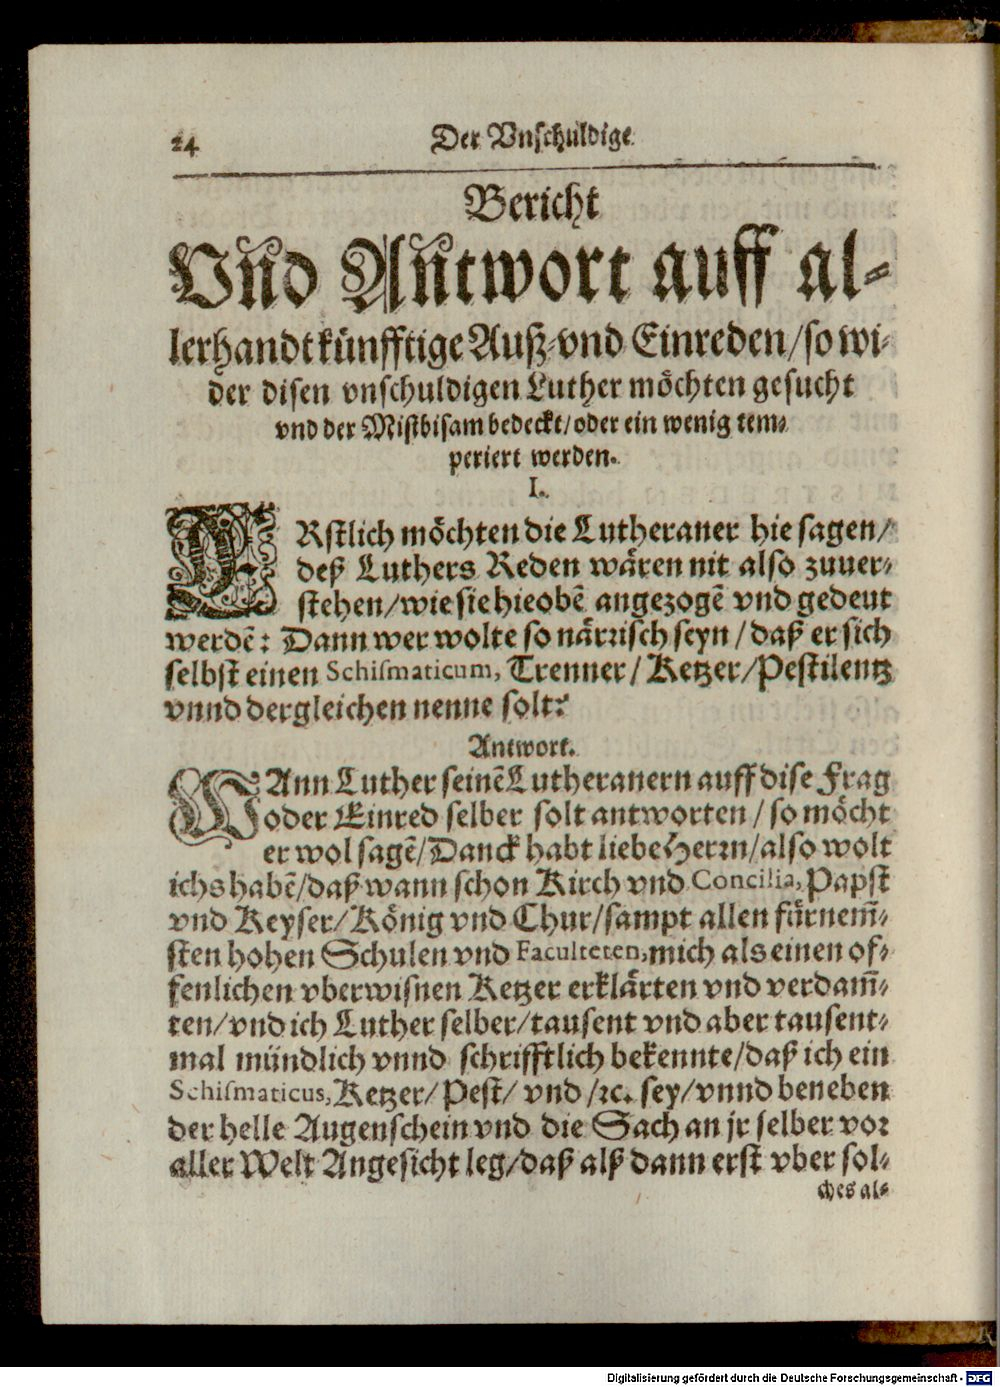 24 Der Vnschuldige
Bericht
Vnd Antwort auff al-
lerhandt künfftige Auß-vnd Einreden/so wi-
der disen vnschuldigen Luther möchten gesucht
vnd der Mistbisam bedeckt/oder ein wenig tem-
periert werden.
I.
ERstlich möchten die Lutheraner hie sagen/
deß Luthers Reden wären nit also zuuer-
stehen/wie sie hieobē angezogē vnd gedeut
werdē: Dann wer wolte so närrisch seyn/daß er sich
selbst einen Schismaticum, Trenner/Ketzer/Pestilentz
vnnd dergleichen nenne solt?
Antwort.
WAnn Luther seinē Lutheranern auff dise Frag
oder Einred selber solt antworten/so möcht
er wol sagē/Danck habt liebe Herrn/also wolt
ichs habē/daß wann schon Kirch vnd Concilia, Papst
vnd Keyser/König vnd Chur/sampt allen fürnem̄-
sten hohen Schulen vnd Faculteten, mich als einen of-
fenlichen vberwisnen Ketzer erklärten vnd verdam̄-
ten/vnd ich Luther selber/tausent vnd aber tausent-
mal mündlich vnnd schrifftlich bekennte/daß ich ein
Schismaticus, Ketzer/Pest/vnd/ꝛc. sey/vnnd beneben
der helle Augenschein vnd die Sach an jr selber vor
aller Welt Angesicht leg/daß alß dann erst vber sol-
ches al-
Digitalisierung gefördert durch die Deutsche Forschungsgemeinschaft - DFG